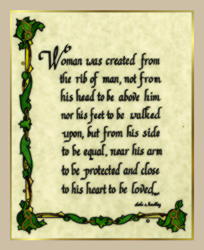 Woman was created from
the rib of man, not from
his head to be above him
nor his feet to be walked
upon, but from his side
to be equal, near his arm
to be protected and close
to his heart to be loved.